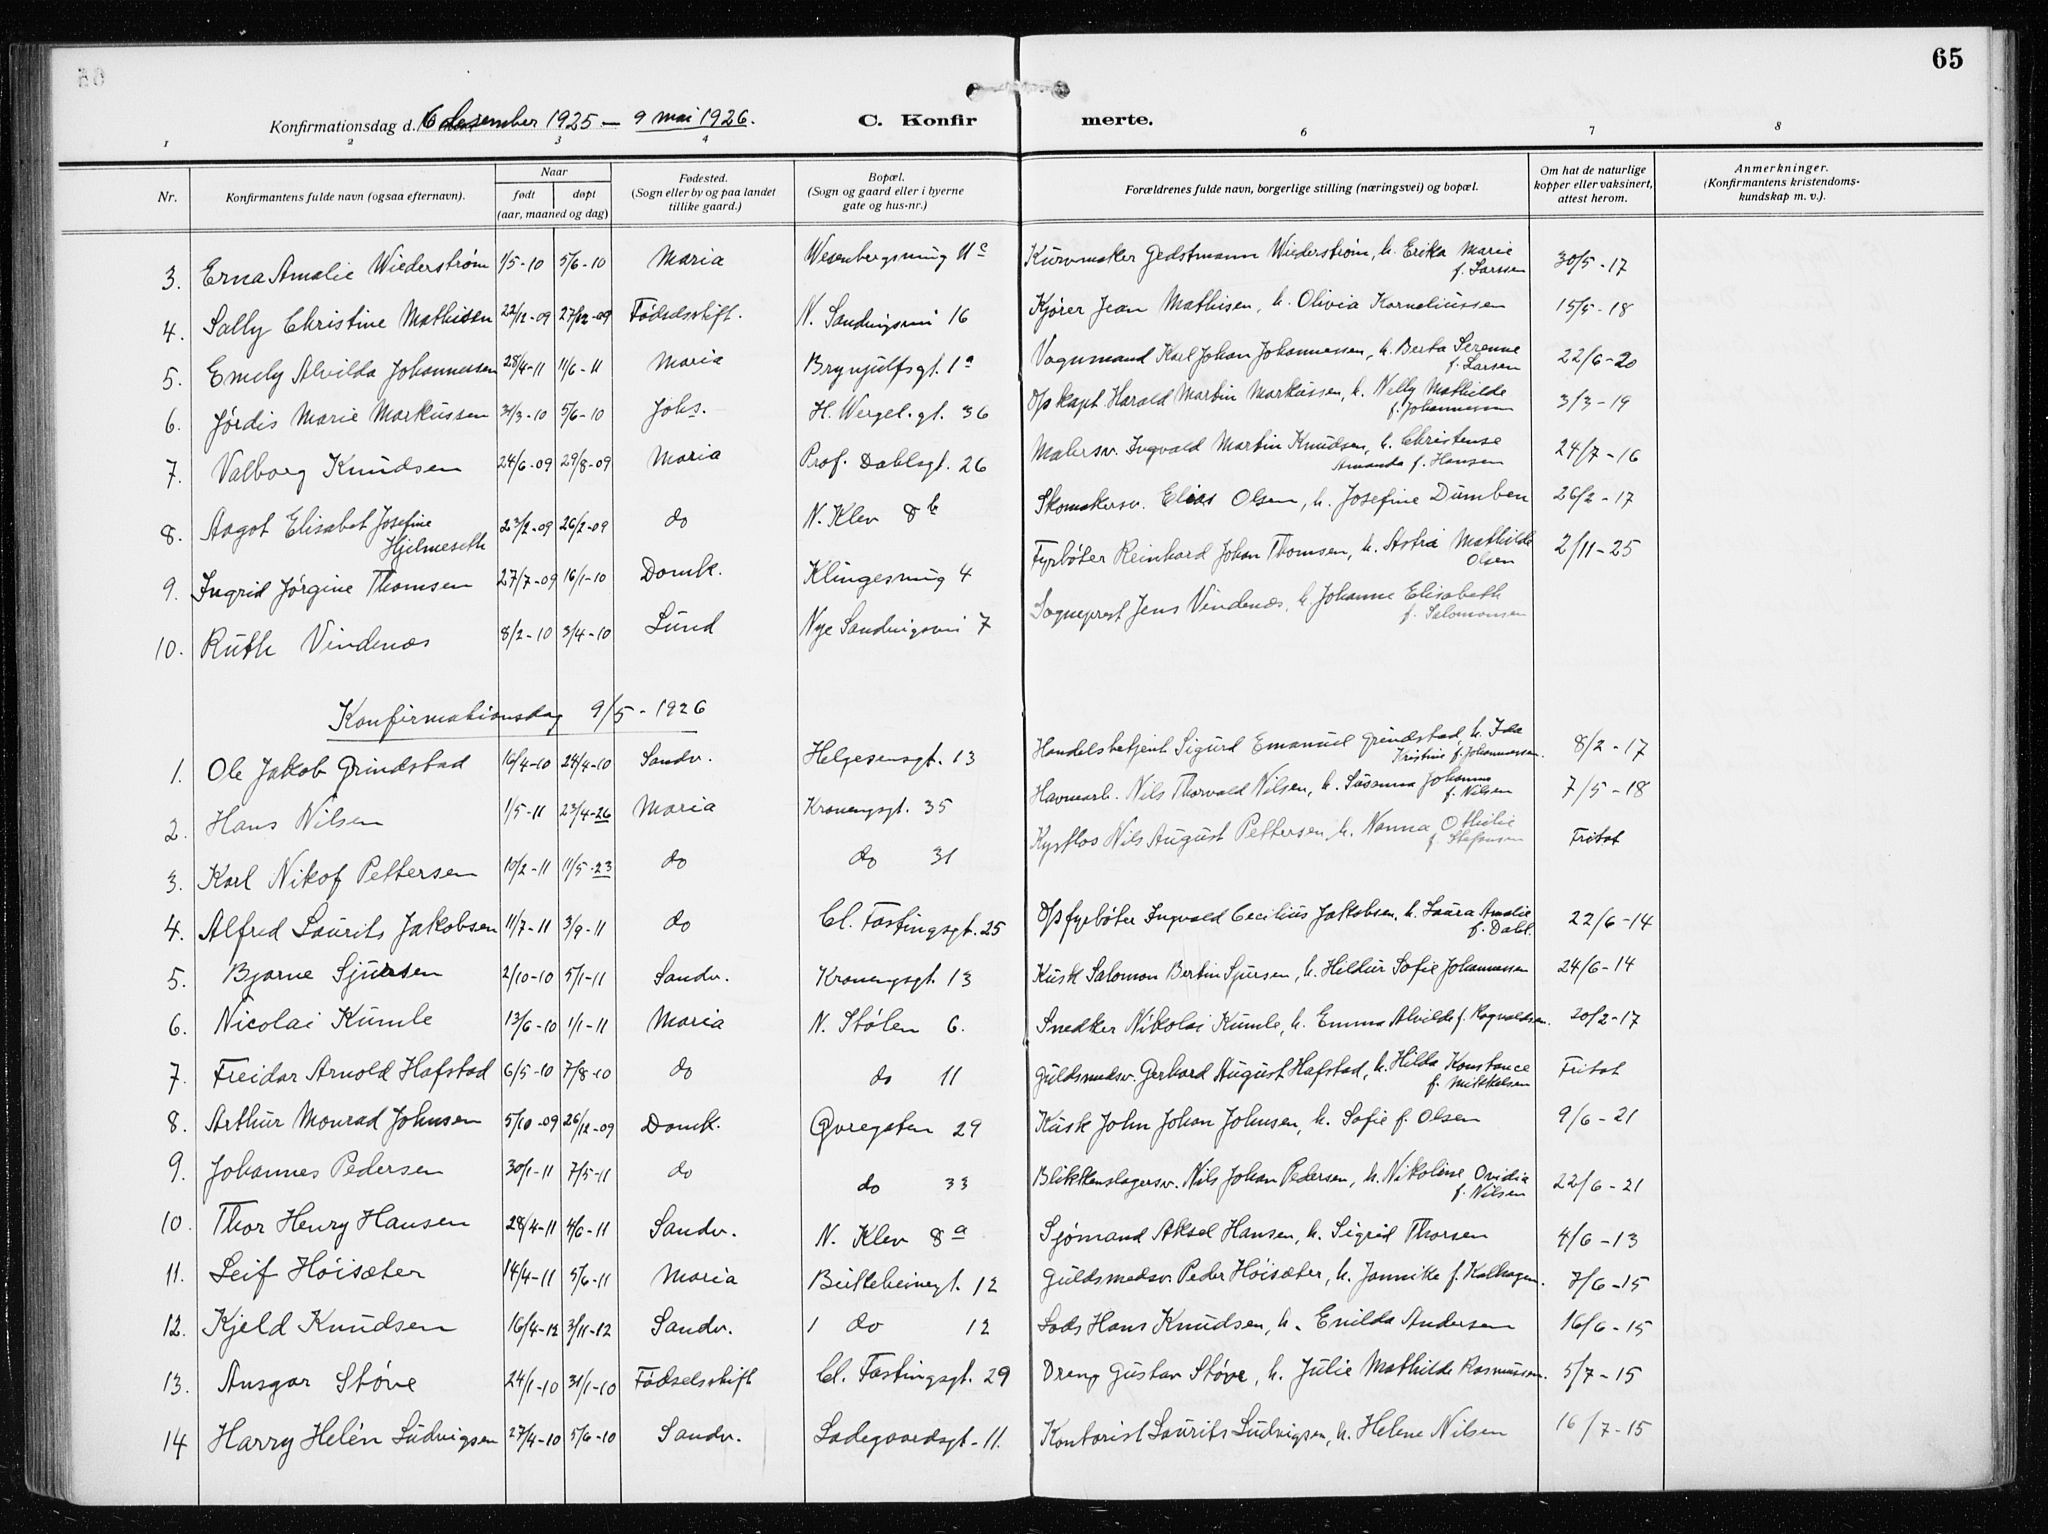 65
Konfirmationsdag d. 6 desember 1925 — 9 mai 1926. C. Konfirmerte.
1 2 3 4 6 7 8
Nr. Konfirmantens fulde navn (ogsaa efternavn). Naar født døpt (aar, maaned og dag) Fødested. (Sogn eller by og paa landet tillike gaard.) Bopæl. (Sogn og gaard eller i byerne gate og hus-nr.) Forældrenes fulde navn, borgerlige stilling (næringsvei) og bopæl. Om hat de naturlige kopper eller vaksinert, attest herom. Anmerkninger. (Konfirmantens kristendomskundskap m. v.).
3. Erna Amalie Wiederstrøm 1/5-10 5/6-10 Maria Wesenbergsmug 11c Kurvmaker Gedstmann Wiederstrøm, h. Erika Marie f. Larsen 30/5-17
4. Sally Christine Mathisen 22/12-09 27/12-09 Fødselsstift. N. Sandvigsvei 16 Kjører Jean Mathisen, h. Olivia Korneliussen 15/5-18
5. Emely Alvilda Johannessen 28/4-11 11/6-11 Maria Brynjulfsgt. 1a Vognmand Karl Johan Johannessen, h. Berta Serenne f. Larsen 22/6-20
6. Jørdis Marie Markussen 31/3-10 5/6-10 Johs. H. Wergel. gt. 36 D/s kapt. Harald Martin Markussen, h. Nelly Mathilde f. Johannessen 3/3-19
7. Valborg Knudsen 24/6-09 29/8-09 Maria Prof. Dahlsgt. 26 Malersv. Ingvald Martin Knudsen, h. Christense Amanda f. Hansen 24/7-16
8. Aagot Elisabet Josefine Hjelmeseth 23/2-09 26/2-09 do N. Klev 8b Skomakersv. Elias Olsen, h. Josefine Dumben 26/2-17
9. Ingrid Jørgine Thomsen 27/7-09 16/1-10 Domk. Klingesmug 4 Fyrbøter Reinhard Johan Thomsen, h. Astri Mathilde Olsen 2/11-25
10. Ruth Vindenæs 8/2-10 3/4-10 Lund Nye Sandvigsvei 7 Sogneprest Jens Vindenæs, h. Johanne Elisabeth f. Salomonsen
Konfirmationsdag 9/5-1926
1. Ole Jakob Grindstad 16/4-10 24/4-10 Sandv. Helgesensgt. 13 Handelsbetjent Sigurd Emanuel Grindstad, h. Ida Kristine f. Johannessen. 8/2-17
2. Hans Nilsen 1/5-11 23/4-26 Maria Kronengsgt. 35 Havnearb. Nils Thorvald Nilsen, h. Susanna Johanna f. Nilsen 7/5-18
3. Karl Nikof Pettersen 10/2-11 11/5-23 do do 31 Kystlos Nils August Pettersen, h. Nanna Othilie f. Stefansen Fritat
4. Alfred Laurits Jakobsen 11/7-11 3/9-11 do Cl. Fastingsgt. 25 D/s fyrbøter Ingvald Cecilius Jakobsen, h. Laura Amalie f. Dahl. 22/6-14
5. Bjarne Sjursen 2/10-10 5/1-11 Sandv. Kronengsgt. 13 Kusk Salomon Bertin Sjursen, h. Hildur Sofie Johannessen 24/6-14
6. Nicolai Kumle 13/6-10 1/1-11 Maria N. Stølen 6. Snedker Nikolai Kumle, h. Emma Alvilde f. Ragvaldsen. 20/2-17
7. Freidar Arnold Hafstad 6/5-10 7/8-10 do do 11 Guldsmedsv. Gerhard August Hafstad, h. Hilda Konstance f. Mikkelsen Fritat
8. Arthur Monrad Johnsen 5/10-09 26/12-09 Domk. Øvregaten 29 Kusk John Johan Johnsen, h. Sofie f. Olsen 9/6-21
9. Johannes Pedersen 30/1-11 7/5-11 do do 33 Blikkenslagersv. Nils Johan Pedersen, h. Nikoline Ovidia f. Nilsen 22/6-21
10. Thor Henry Hansen 28/4-11 4/6-11 Sandv. N. Klev 8a Sjømand Aksel Hansen, h. Sigrid Thorsen 4/6-13
11. Leif Høisæter 14/4-11 5/6-11 Maria Bukkebeinsgt. 12 Guldsmedsv. Peder Høisæter, h. Jannike f. Kalhagen. 7/6-15
12. Kjeld Knudsen 16/4-12 3/11-12 Sandv. 1 do 12 Lods Hans Knudsen, h. Enilda Andersen 16/6-15
13. Ansgar Støve 24/1-10 31/1-10 Fødselsstift Cl. Fastingsgt. 29 Dreng Gustav Støve, h. Julie Mathilde Rasmussen. 5/7-15
14 Harry Helén Ludvigsen 27/4-10 5/6-10 Sandv. Ladegaardsgt. 11. Kontorist Laurits Ludvigsen, h. Helene Nilsen 16/7-15